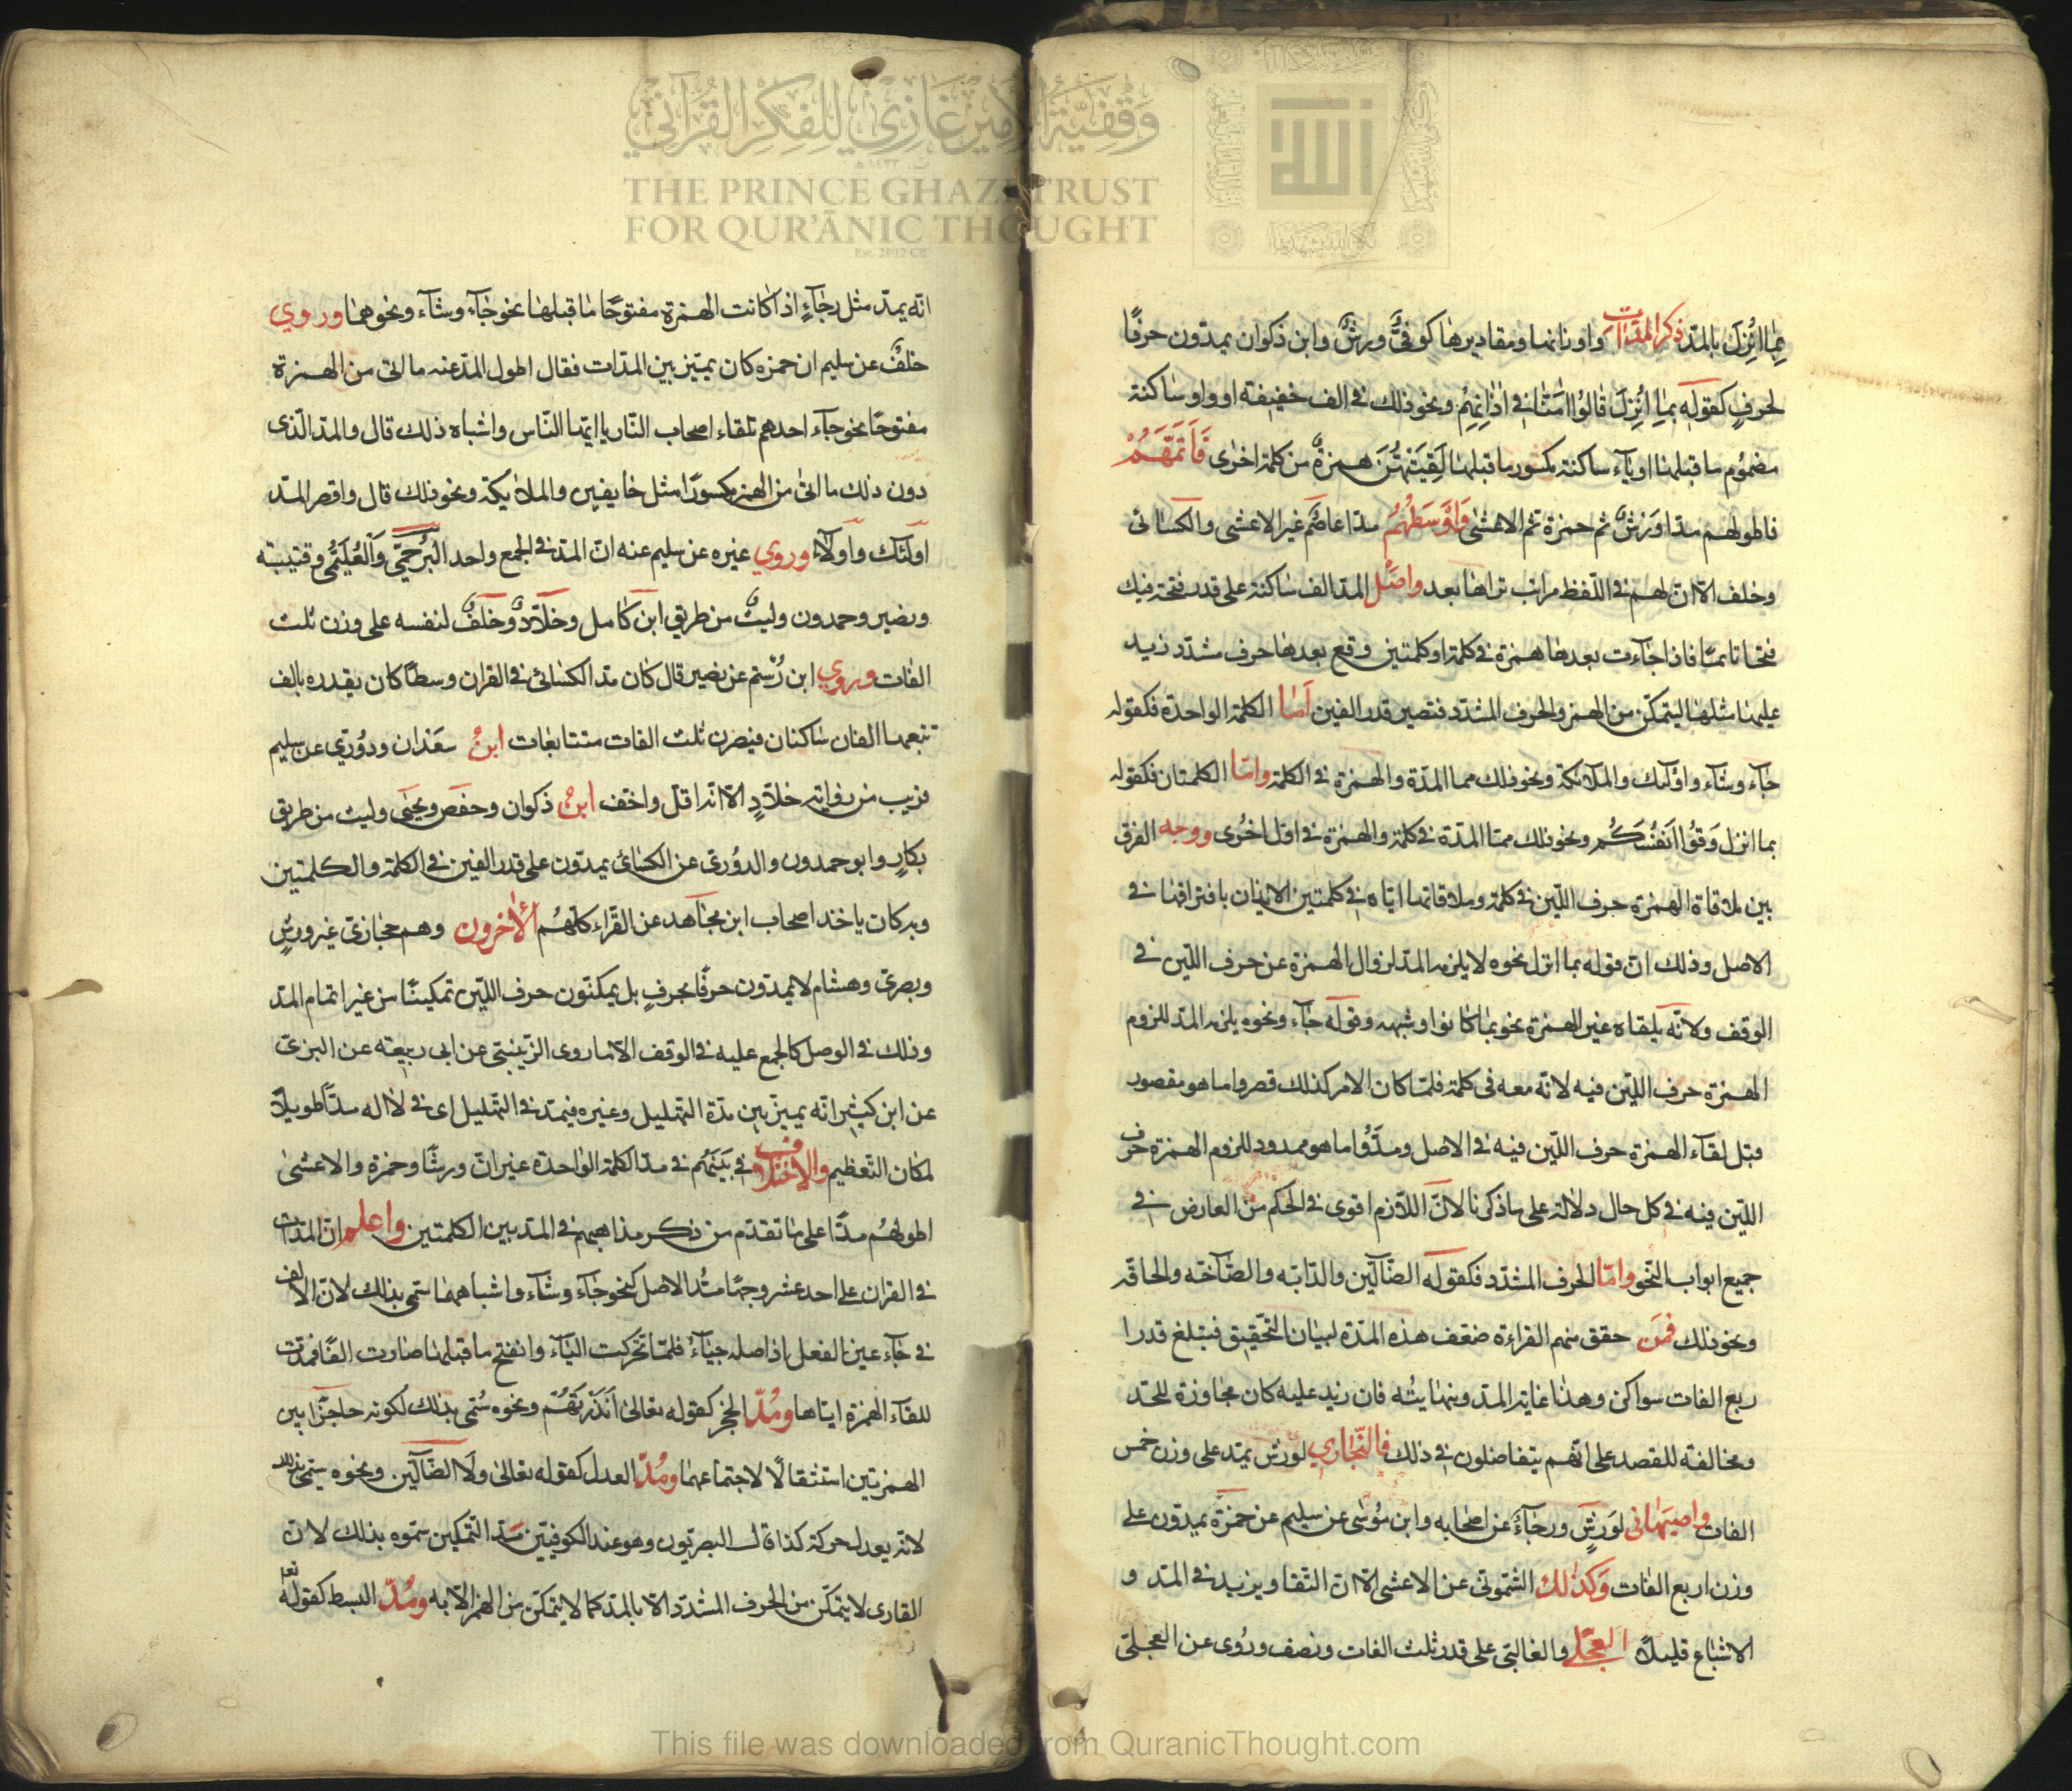 بما انزل بالمدّ ذكر المدّات واوزانها ومقاديرها كوفىٌّ ورشٌ وابن ذكوان يمدّون حرفًا
لحرفٍ كقوله بما انزل قالوا امنّا فى اذانهم ونحو ذلك فى الف خفيفة او واو ساكنة
مضموم ما قبلها او ياء ساكنة مكسور ما قبلها لقيتهنّ همزةٌ من كلمة اخرى فاتمّهم
فاطولهم مدّا ورشٌ ثم حمزة ثم الاعشى واوسطهم مدّا عاصم غير الاعشى والكسائى
وخلف الا انّ لهم فى اللّفظ مراتب تراها بعد واصل المدّ الف ساكنة على قدر فتحة فيك
فتحا تامّا فاذا جاءت بعدها همزة فى كلمة او كلمتين وقع بعدها حرف مشدّد زيد
عليها مثلها ليتمكّن من الهمز والحرف المشدّد فتصير قدر الفين امّا الكلمة الواحدة فكقوله
جاء وشاء واولئك والملائكة ونحو ذلك مما المدّة والهمزة فى الكلمة وامّا الكلمتان فكقوله
بما انزل وقوا انفسكم ونحو ذلك ممّا المدّة فى كلمة والهمزة فى اول اخرى ووجه الفرق
بين ملاقاة الهمزة حرف اللّين فى كلمة وملاقاتها ايّاه فى كلمتين الايذان بافتراقهما فى
الاصل وذلك انّ قوله بما انزل نحوه لا يلزمه المدّ لزوال الهمزة عن حرف اللّين فى
الوقف ولانّه يلقاه غير الهمزة نحو بما كانوا وشبهه وقوله جاء ونحوه يلزمه المدّ للزوم
الهمزة حرف اللّين فيه لانّه معه فى كلمة فلمّا كان الامر كذلك قصروا ما هو مقصور
قبل لقاء الهمزة حرف اللّين فيه فى الاصل ومدّوا ما هو ممدود للزوم الهمزة حرف
اللّين فيه فى كل حال دلالة على ما ذكرنا لانّ اللّازم اقوى فى الحكم من العارض فى
جميع ابواب النّحو وامّا الحرف المشدّد فكقوله الضّالّين والدّابّه والصّاخّه والحاقّه
ونحو ذلك فمن حقق منهم القراءة ضعّف هذه المدّة لبيان التّحقيق فيبلغ قدرا
ربع الفات سواكن وهذا غاية المدّ ونهايتُه فان زيد عليه كان مجاوزة للحدّ
ومخالفة للقصد على انّهم يتفاضلون فى ذلك فالنّجّارى لورش يمدّ على وزن خمس
الفات واصبهانى لورشٍ ورجاءٌ عن اصحابه وابن موسى عن سليم عن حمزة يمدّون على
وزن اربع الفات وكذلك الشّمّونى عن الاعشى الا انّ النّقاد يزيد فى المدّ و
الاشباع قليلاً العجلى والغالبى على قدر ثلث الفات ونصف وروى عن العجلىّ
انّه يمدّ مثل رجاءٍ اذا كانت الهمزة مفتوحًا ما قبلها نحو جاء وشاء ونحوهما وروي
خلفٌ عن سليم ان حمزه كان يميّز بين المدّات فقال اطول المدّ عنه ما اتى من الهمزة
مفتوحًا نحو جاء احدهم تلقاء اصحاب النّار يا ايّها النّاس واشباه ذلك قال والمدّ الّذى
دون ذلك ما اتى من الهمز مكسورًا مثل خايفين والملايكة ونحو ذلك قال واقصر المدّ
اولئك واولاء وروي غيره عن سليم عنه انّ المدّ فى الجمع واحد البُرجمىّ والعُليمىّ وقتيبة
ونصير وحمدون وليثٌ من طريق ابن كامل وخلّادٌ وخلفٌ لنفسه على وزن ثلث
الفات وروي ابن رُستم عن نصير قال كان مدّ الكسائى فى القران وسطًا كان يقدره بالف
تتبعها الفان ساكنان فيصرن ثلث الفات متتابعات ابنُ سعدان ودُورى عن سليم
قريب من رواية خلّادٍ الا انّه اقلّ واخفّ ابنُ ذكوان وحفص ويحيى وليث من طريق
بكارٍ وابو حمدون والدوُرىّ عن الكسائى يمدّون على قدر الفين فى الكلمة والكلمتين
وبه كان ياخذ اصحاب ابن مجاهد عن القرّاء كلّهم الأخرون وهم حجازىّ غير ورشٍ
وبصرىّ وهشام لا يمدّون حرفًا بحرفٍ بل يمكنّون حرف اللّين تمكينًا من غير اتمام المدّ
وذلك فى الوصل كالجمع عليه فى الوقف الا ما روى الزّينبىّ عن ابى ربيعة عن البزىّ
عن ابن كثير انّه يميز بين مدّة التهليل وغيره فيمدّ فى التّهليل اى فى لا اله مدّا طويلاً
لمكان التّعظيم والاختلاف فى بينهم فى مدّ الكلمة الواحدة غير انّ ورشًا وحمزة والاعشى
اطولهُم مدًّا على ما تقدّم من ذكر مذاهبهم فى المدّ بين الكلمتين واعلم انّ المدّات
فى القران على احد عشر وجهًا مدُّ الاصل كنحو جاء وشاء واشباههما سمّى بذلك لانّ الالف
فى جاء عين الفعل اذ اصله جيأ فلمّا تحّركت الياء وانفتح ما قبلها صارت الفًا فمدّت
للقاء الهمزة ايّاها ومُدّ الحجز كقوله تعالى أأنذرتهُم ونحوه سُمّى بذلك لكونه حاجزًا بين
الهمزتين استثقالًا لاجتماعهما ومُدّ العدل كقوله تعالى ولا الضّالّين ونحوه سمّى بذلك
لانّه يعدل حركة كذا قال البصريّون وهو عند الكوفيّين مدّ التّمكين سمّوه بذلك لانّ
القارى لا يتمكّن من الحرف المشدّد الّا بالمدّ كما لا يتمكّن من الهمز الّا به ومُدّ البسط كقوله تعا
وَقْفِيَّةُ الأَمِيرْ غَازِي لِلْفِكْرِ القُرْآنِيّ
THE PRINCE GHAZI TRUST
FOR QUR'ĀNIC THOUGHT
This file was downloaded from QuranicThought.com